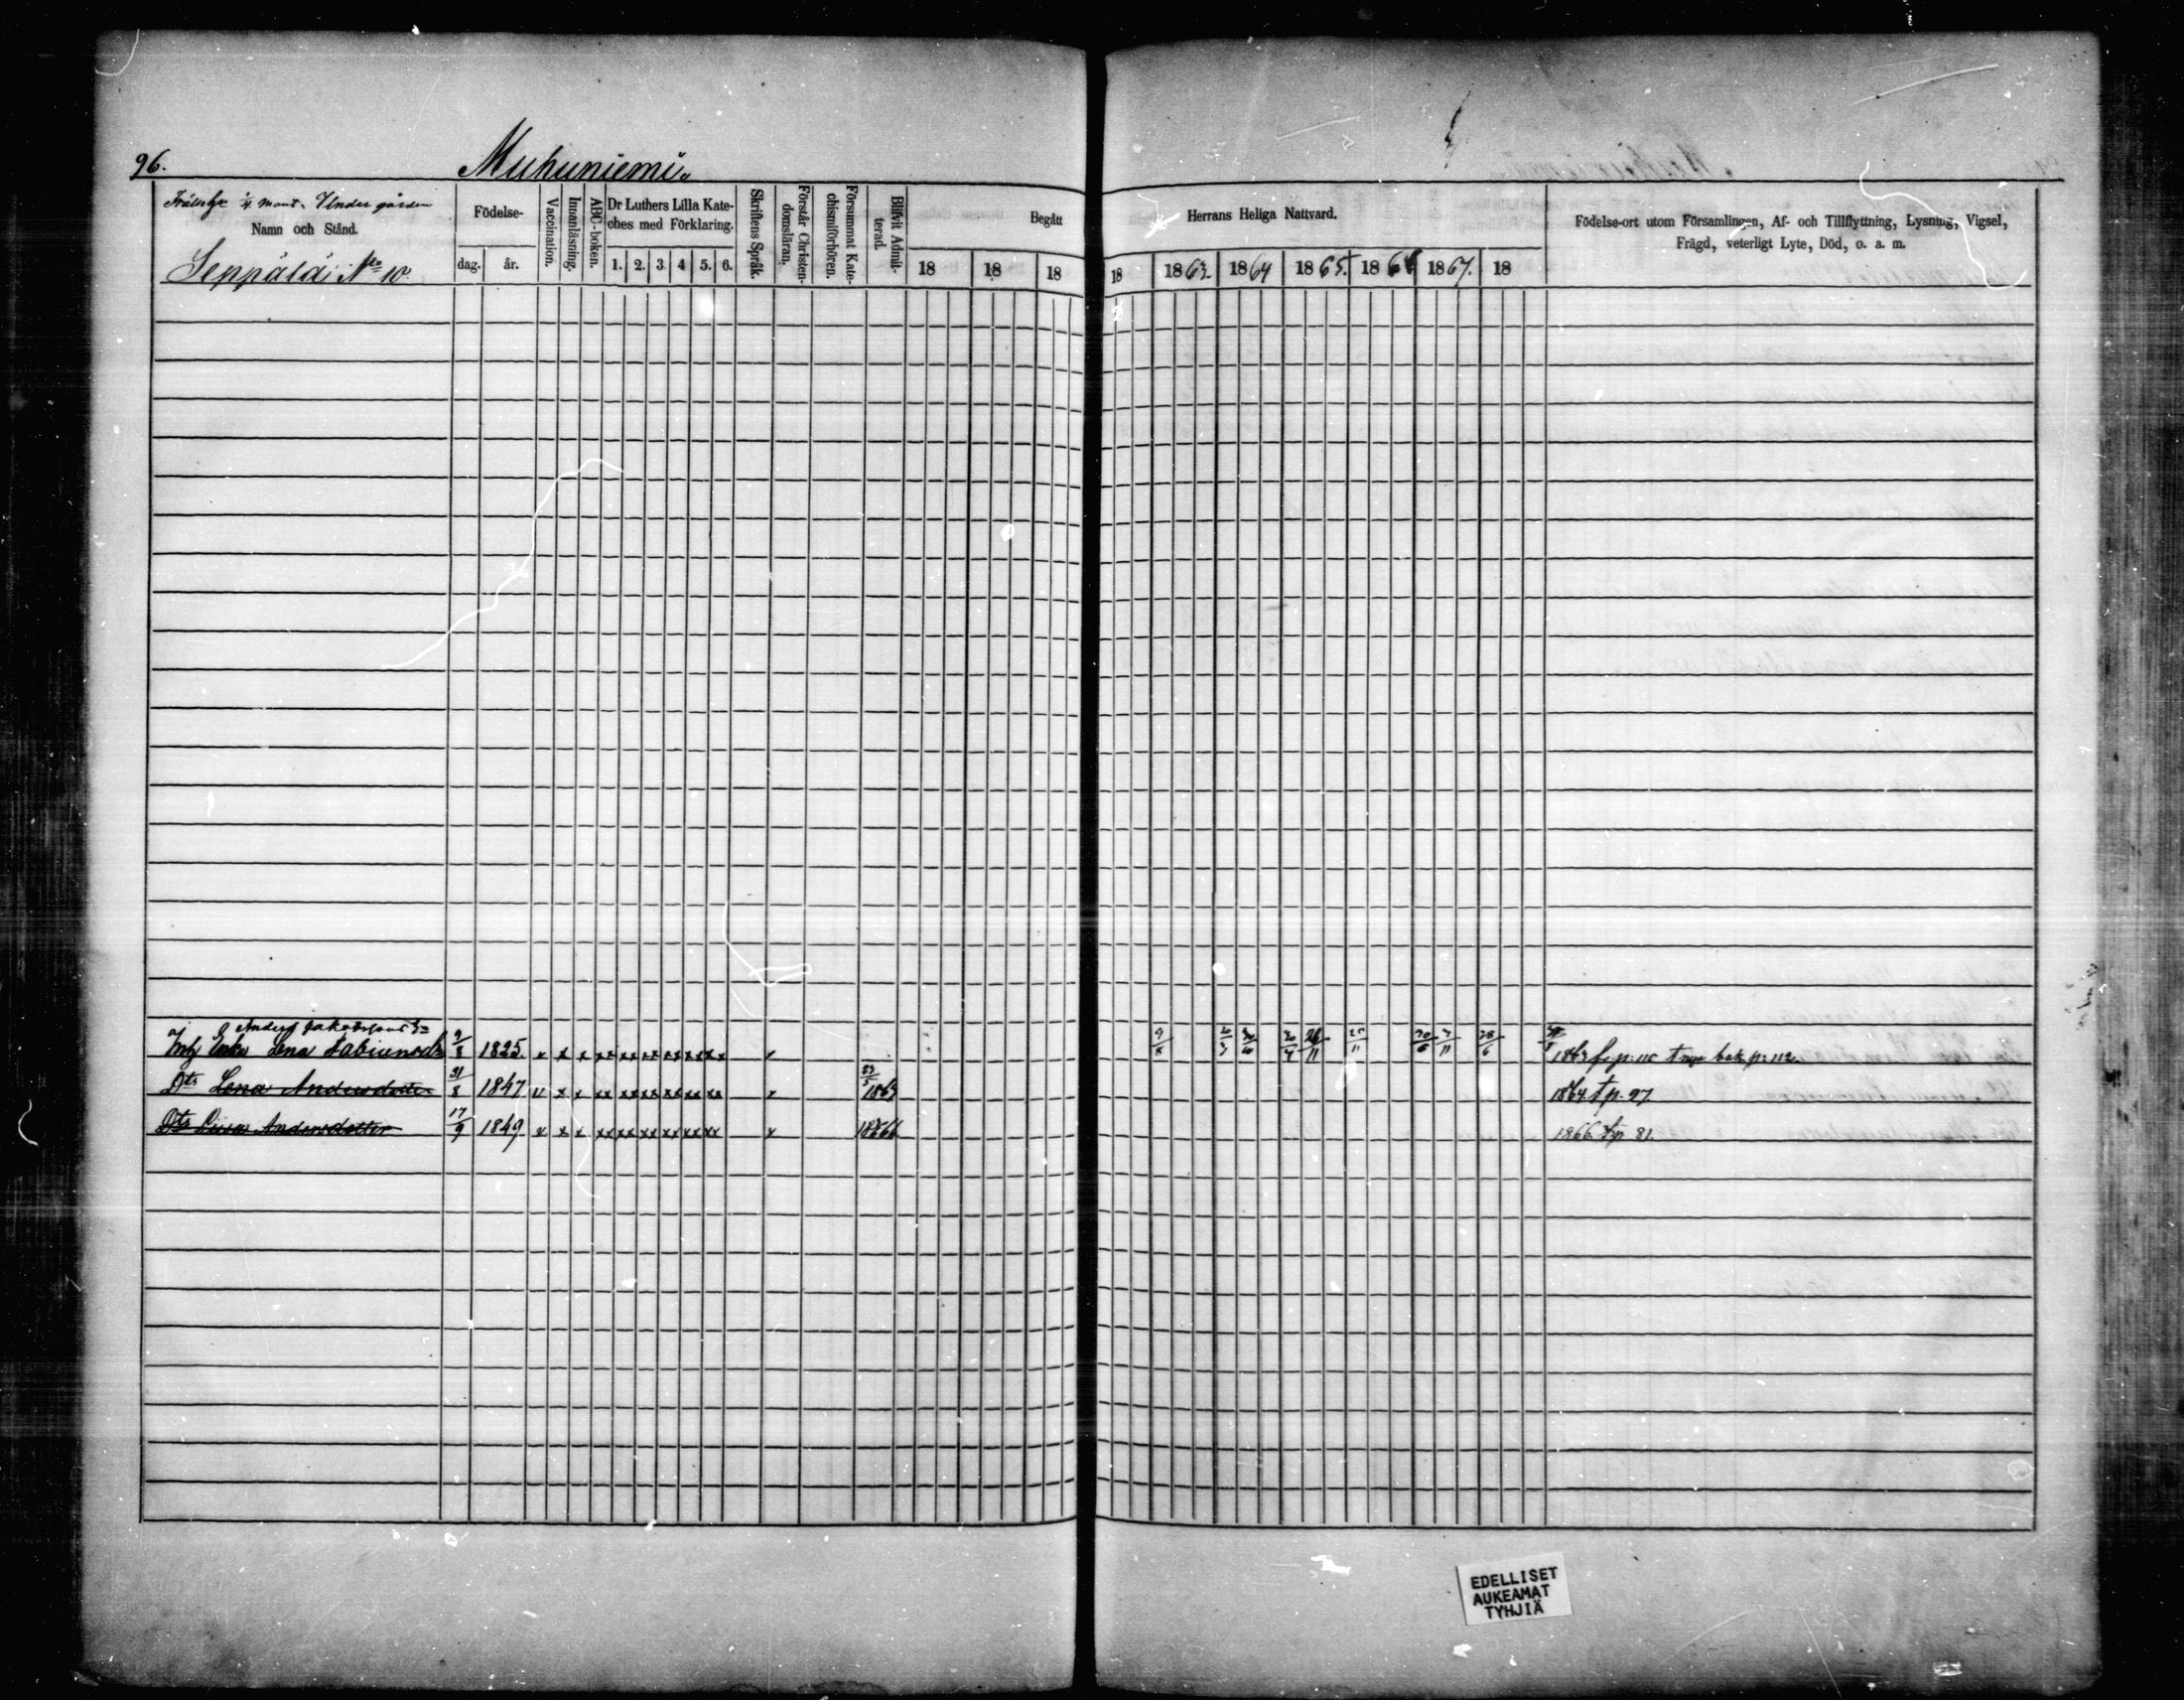 96. Muhuniemi.
Frälse ¼ mant. Under gården
Namn och Stånd.
Seppälä No 10.
Födelse-
dag. år.
Vaccination.
Innanläsning.
ABC-boken.
Dr Luthers Lilla Kate-
ches med Förklaring.
1. 2. 3. 4 5. 6.
Skriftens Språk.
Förstår Christen-
domsläran.
Försummat Kate-
chismiförhören.
Blifvit Admit-
terad.
Begått Herrans Heliga Nattvard.
18 18 18 18 1863. 1864 1865. 1866 1867. 18
Födelse-ort utom Församlingen, Af- och Tillflyttning, Lysning, Vigsel,
Frägd, veterligt Lyte, Död, o. a. m.
Anders Jakobsons
Enka Lena Fabiensd 9/8 1825. 1863 fr p: 115 t nya bok p: 112.
Dtr Lena Andersdotter 31/8 1847 1863 1864 t p. 97
Dtr Lisa Andersdotter 17/9 1849 1866 1866 t p 81.
EDELLISET
AUKEAMAT
TYHJIÄ